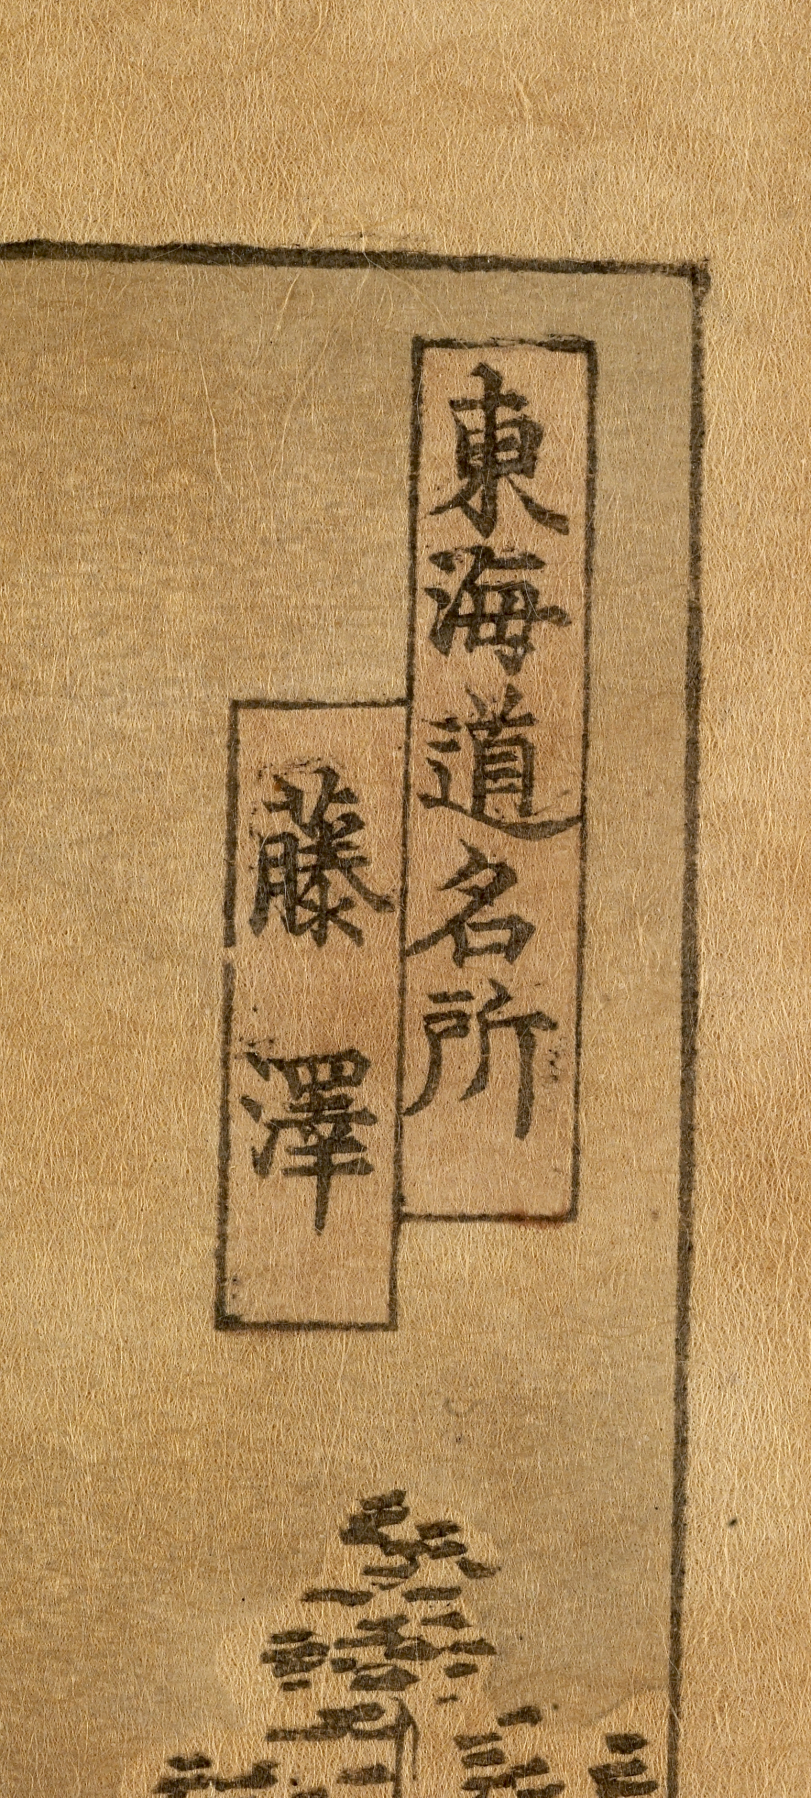 東海道名所
藤澤